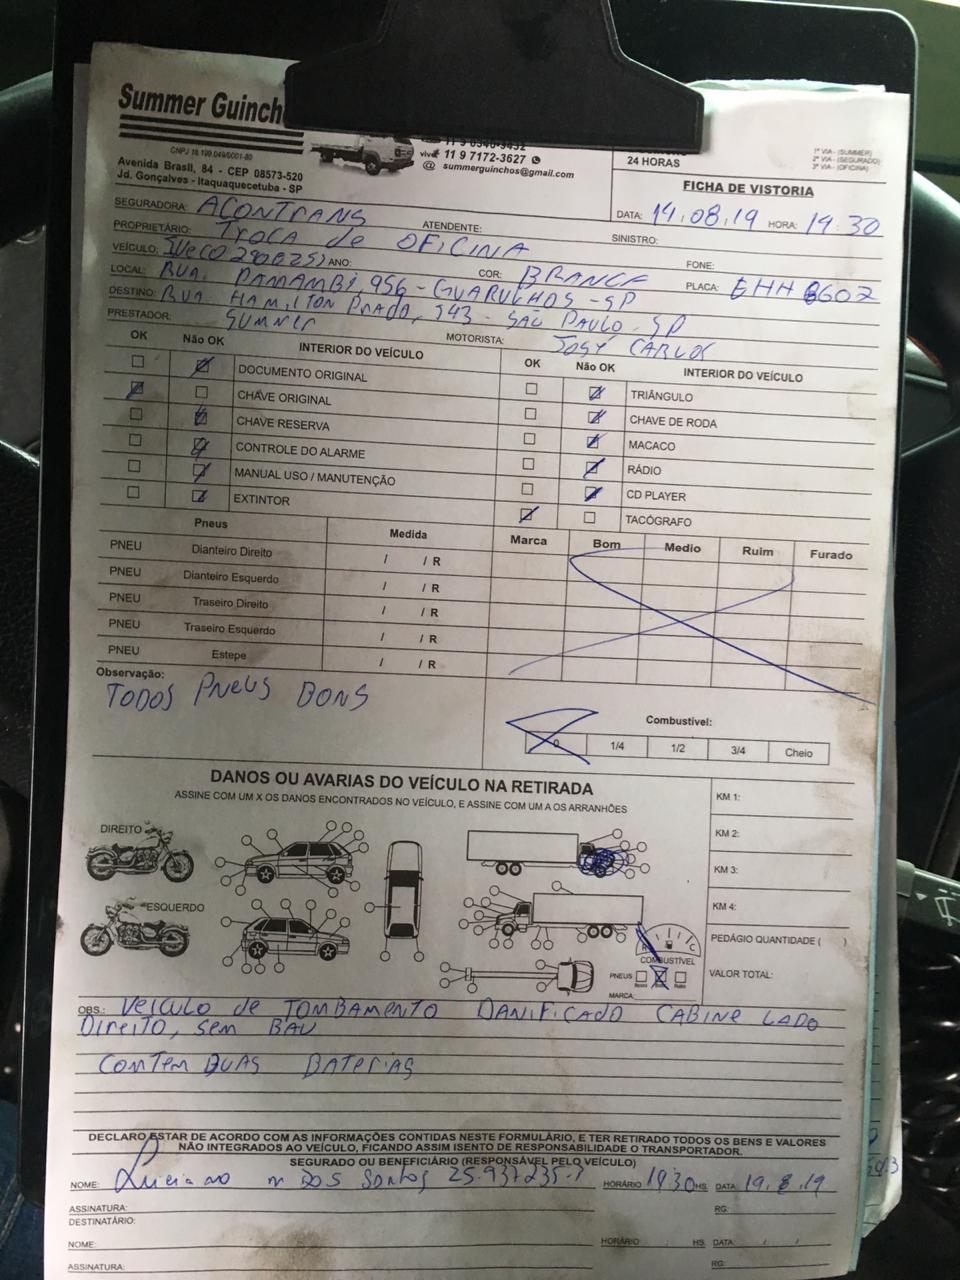 Summer Guinch
CNPJ 18.199.049/0001-80
Avenida Brasil, 84 - CEP 08573-520
Jd. Gonçalves - Itaquaquecetuba - SP
vivo 11 9 7172-3627
@ summerguinchos@gmail.com
24 HORAS
1ª VIA - (SUMMER)
2ª VIA - (SEGURADO)
3ª VIA - (OFICINA)
FICHA DE VISTORIA
SEGURADORA: ACONTRANS ATENDENTE: DATA: 14.08.19 HORA: 19:30
PROPRIETÁRIO: TROCA de OFICINA SINISTRO:
VEÍCULO: IVECO ANO: COR: BRANCF FONE:
LOCAL: RUA. PAMAMBI, 956 - GUARULHOS - SP PLACA: EHH 8602
DESTINO: RUA HAMILTON PRADO, 343 - SÃO PAULO - SP
PRESTADOR: SUMMER MOTORISTA: JOSÉ CARLOS
OK Não OK INTERIOR DO VEÍCULO OK Não OK INTERIOR DO VEÍCULO
DOCUMENTO ORIGINAL TRIÂNGULO
CHAVE ORIGINAL CHAVE DE RODA
CHAVE RESERVA MACACO
CONTROLE DO ALARME RÁDIO
MANUAL USO / MANUTENÇÃO CD PLAYER
EXTINTOR TACÓGRAFO
Pneus Medida Marca Bom Medio Ruim Furado
PNEU Dianteiro Direito / / R
PNEU Dianteiro Esquerdo / / R
PNEU Traseiro Direito / / R
PNEU Traseiro Esquerdo / / R
PNEU Estepe / / R
Observação:
TODOS PNEUS BONS
Combustível:
0 1/4 1/2 3/4 Cheio
DANOS OU AVARIAS DO VEÍCULO NA RETIRADA
ASSINE COM UM X OS DANOS ENCONTRADOS NO VEÍCULO, E ASSINE COM UM A OS ARRANHÕES
KM 1:
DIREITO
KM 2:
KM 3:
ESQUERDO
KM 4:
PEDÁGIO QUANTIDADE ( )
COMBUSTÍVEL
PNEUS
MARCA:
VALOR TOTAL:
OBS.: VEÍCULO de TOMBAMENTO DANIFICADO CABINE LADO
DIREITO, SEM BAU
CONTEM DUAS BATERIAS
DECLARO ESTAR DE ACORDO COM AS INFORMAÇÕES CONTIDAS NESTE FORMULÁRIO, E TER RETIRADO TODOS OS BENS E VALORES
NÃO INTEGRADOS AO VEÍCULO, FICANDO ASSIM ISENTO DE RESPONSABILIDADE O TRANSPORTADOR.
SEGURADO OU BENEFICIÁRIO (RESPONSÁVEL PELO VEÍCULO)
NOME: Luciano M DOS Santos HORÁRIO 1930 HS. DATA: 19.8.19
ASSINATURA: RG:
DESTINATÁRIO:
NOME: HORÁRIO : HS. DATA: / /
ASSINATURA: RG: